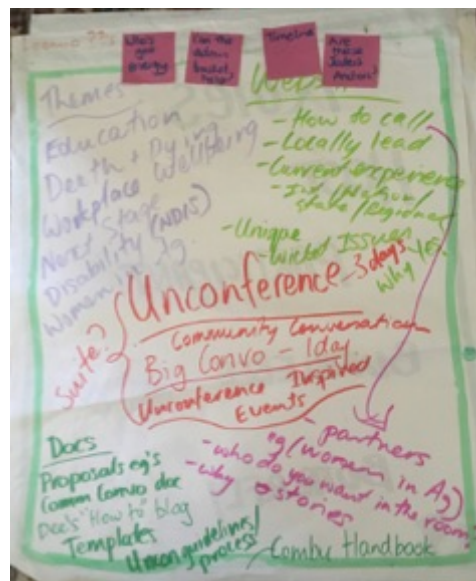 Who's got energy
Timeline
Are these
Themes
Education
Death + Dying
Workplace Wellbeing
Next Stage
Disability (NDIS)
Women in Ag.
- How to call
- Locally lead
- Current experience
- Unique
- Wicked Issues
why
Suite?
Unconference - 3 days
Community Conversation
Big Convo - 1 day
Unconference Inspired
Events
- partners
eg (Women in Ag)
- who do you want in the room
- why
stories
Docs
Proposals eg's
Common Convo doc
Dee's "How to" blog
Templates
Uncon guidelines/
process
Combu Handbook